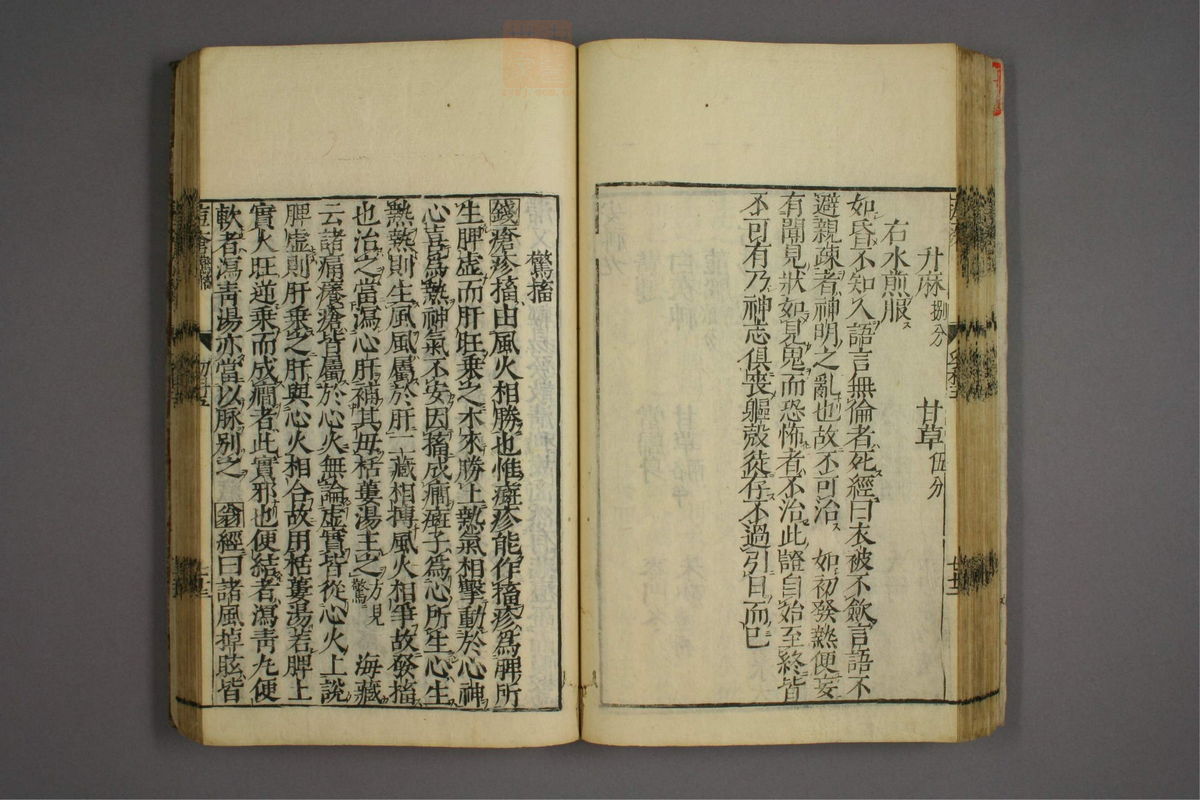 升麻捌分 甘草伍分
右水煎服ス
如昏不知人語言無倫者死經曰衣被不斂言語不
避親疎者神明之亂也故不可治 如初發熱便妄
有聞見狀如見鬼而恐怖者不治此證自始至終皆
不可有乃神志俱喪軀殼徒存不過引日而已
驚搐
錢瘡疹搐由風火相勝也惟癍疹能作搐疹爲脾所
生脾虛而肝旺乗之木來勝土熱氣相擊動於心神
心喜爲熱神氣不安因搐成癎癍子爲心所生心生
熱熱則生風風屬於肝二藏相搏風火相爭故發搐
也治之當瀉心肝補其母栝蔞湯主之方見驚 海藏
云諸痛癢瘡皆屬於心火無論虛實皆從心火上説
脾虛則肝乗之肝與心火相合故用栝蔞湯若脾上
實火旺逆乗而成癎者此實邪也便結者瀉青丸便
軟者瀉青湯亦當以脉别之 翁經曰諸風掉眩皆